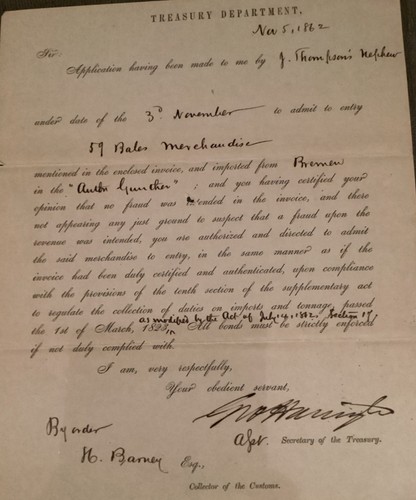 TREASURY DEPARTMENT,
Nov 5, 1862
Sir
Application having been made to me by J. Thompson's Nephew
under date of the 3d November to admit to entry
59 Bales Merchandise
mentioned in the enclosed invoice, and imported from Bremen
in the " "; and you having certified your
opinion that no fraud was intended in the invoice, and there
not appearing any just ground to suspect that a fraud upon the
revenue was intended, you are authorized and directed to admit
the said merchandise to entry, in the same manner as if the
invoice had been duly certified and authenticated, upon compliance
with the provisions of the tenth section of the supplementary act
to regulate the collection of duties on imports and tonnage, passed
as modified by the Act of July 14, 1862. Section 17,
the 1st of March, 1823, All bonds must be strictly enforced
if not duly complied with.
I am, very respectfully,
Your obedient servant,
Geo Harrington
By order
Secretary of the Treasury.
H. Barney Esq.,
Collector of the Customs.